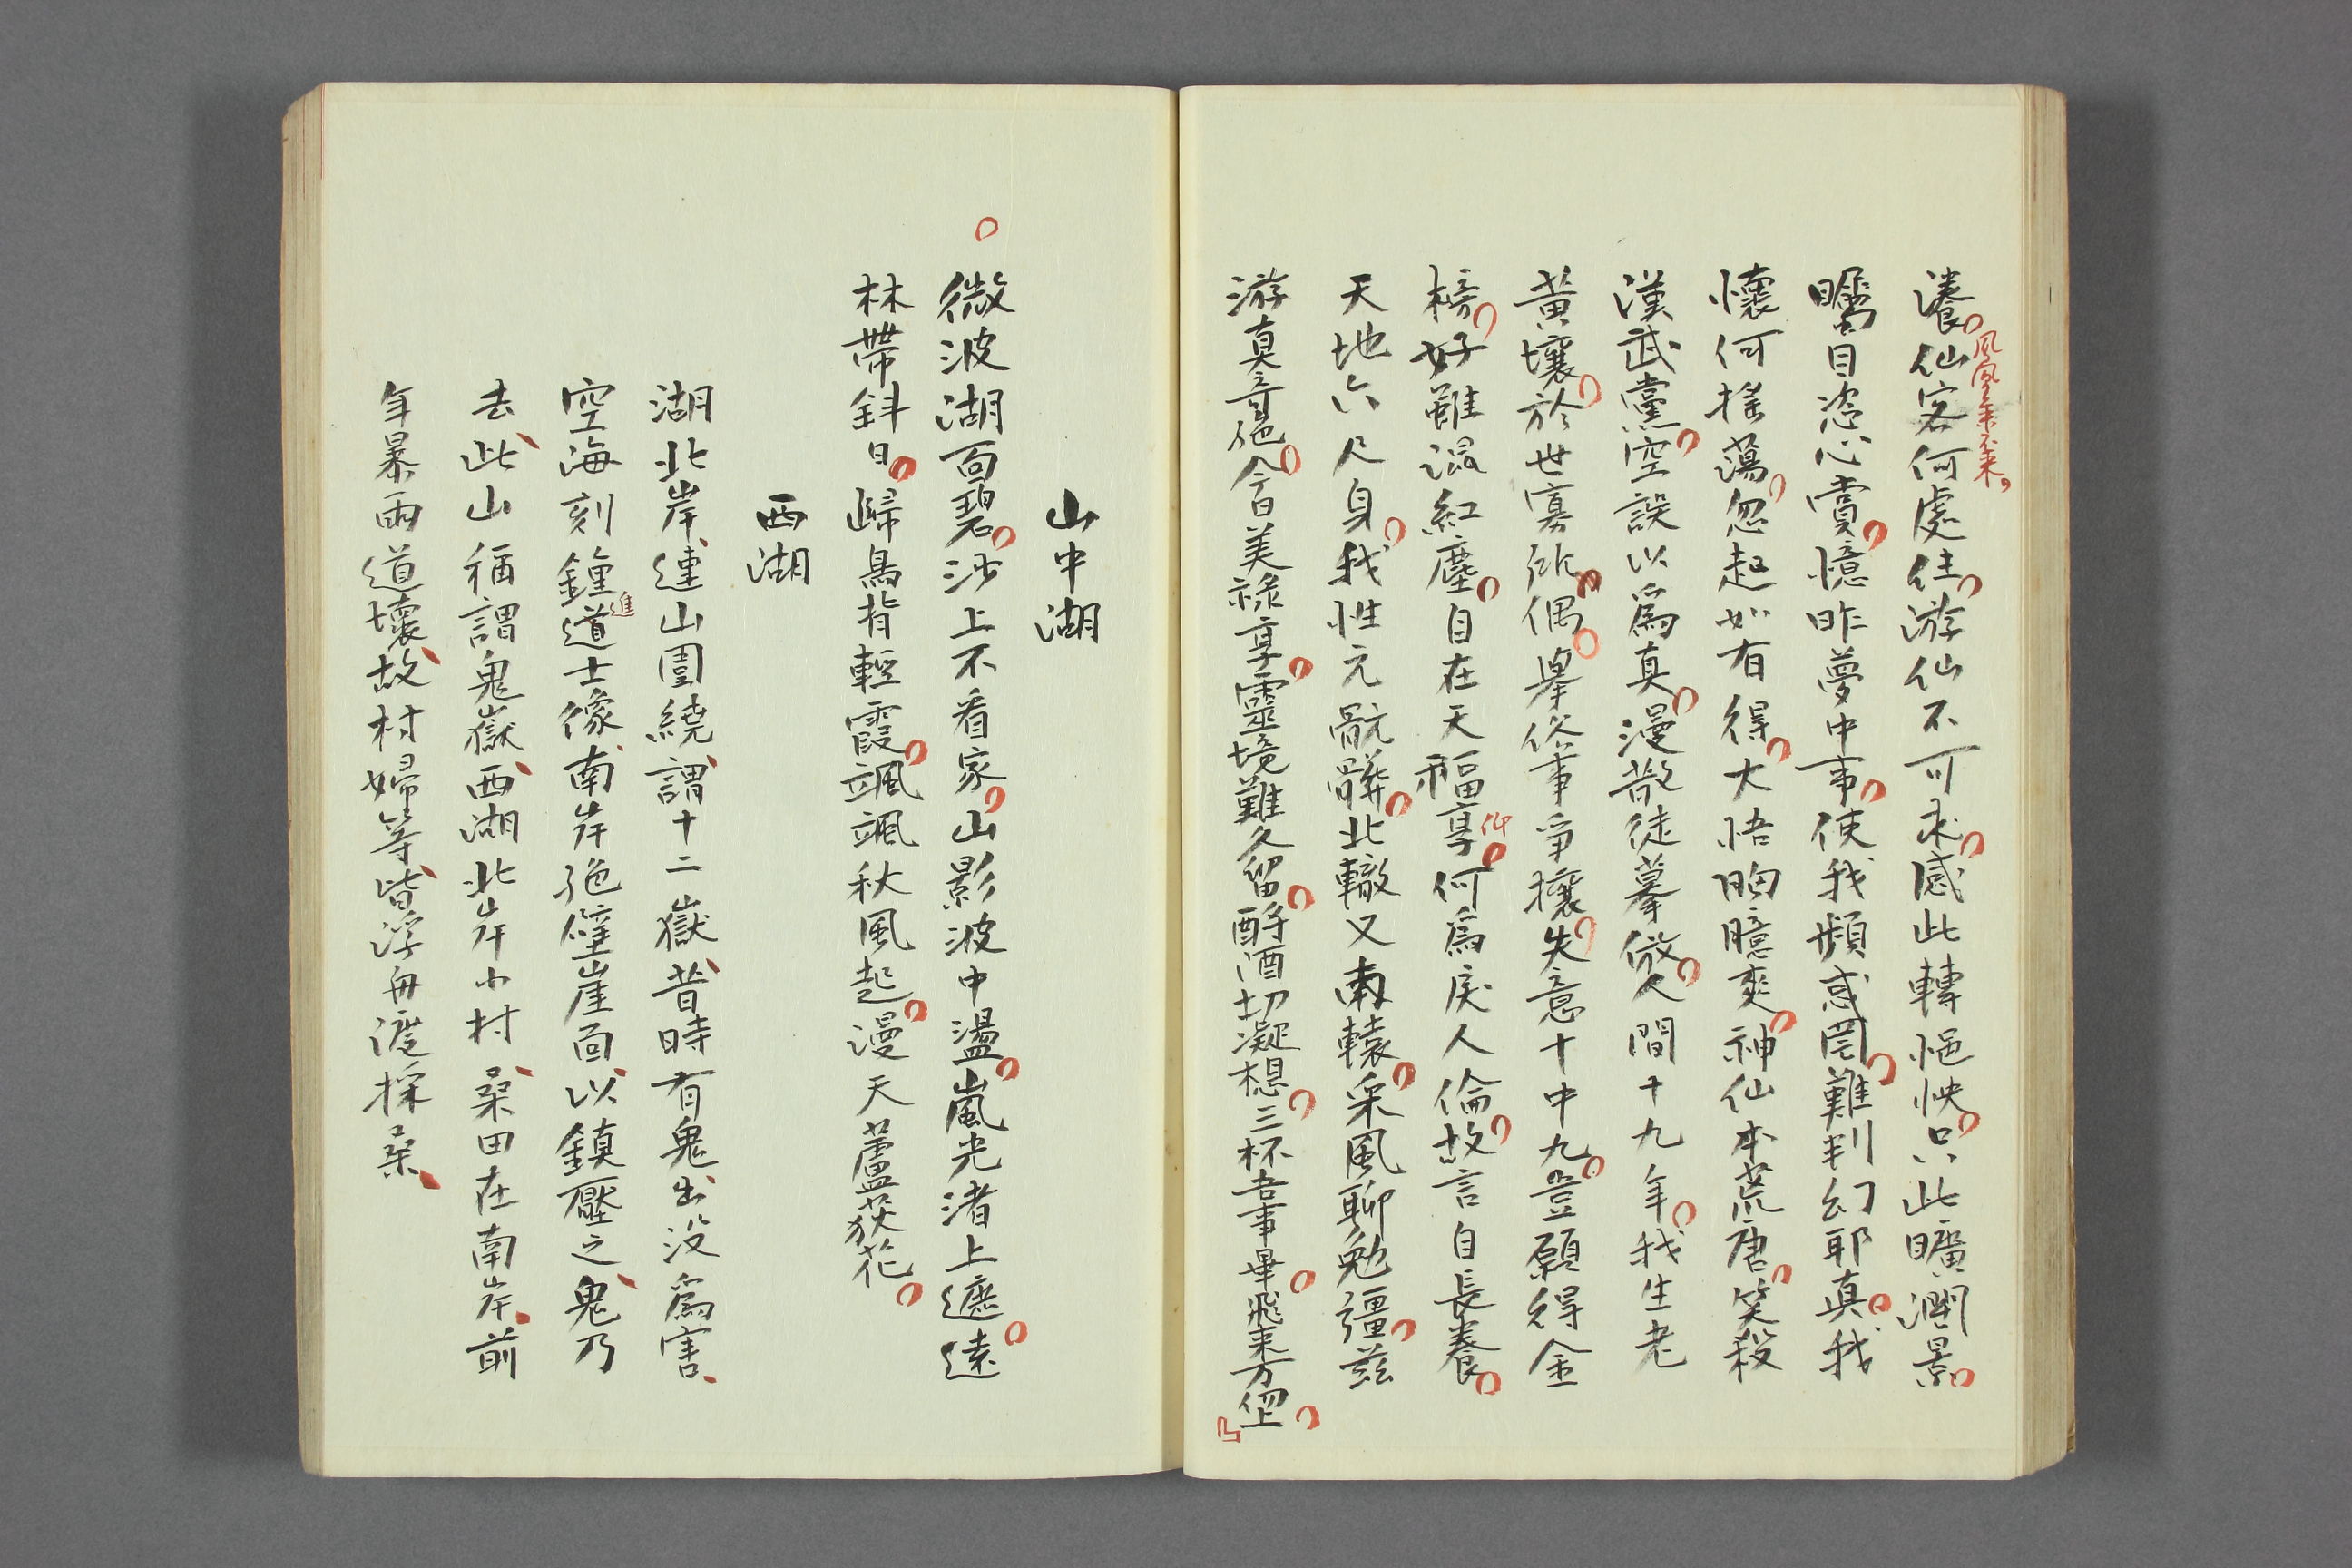 瀁仙客何處住游仙不可求感此轉悒怏只此曠濶景
矚目恣心賞憶昨夢中事使我頻惑罔難判幻耶真我
懷何搖蕩忽起如有得大悟胸臆爽神仙本荒唐笑殺
漢武黨空誤以為真漫散徒摹倣人間十九年我生老
黃壤於世寡所偶舉俗事爭攘失意十中九豈願得金
榜好雖混紅塵自在天福享何為戾人倫故言自長養
仙
天地六尺身我性元骯髒北轍又南轅采風聊勉彊茲
游真奇絕今日美祿享靈境難久留酹酒切凝想三杯吾事畢飛来方
山中湖
微波湖面碧沙上不看家山影波中盪嵐光渚上遮遠
林帶斜日歸鳥背輕霞颯颯秋風起漫天蘆荻花
西湖
湖北岸連山圍繞謂十二嶽昔時有鬼出没為害
空海刻鐘道士像南岸絕壁崖面以鎮壓之鬼乃
進
去此山稱謂鬼嶽西湖北岸小村桑田在南岸前
年暴雨道壞故村婦等皆浮舟渡採桑